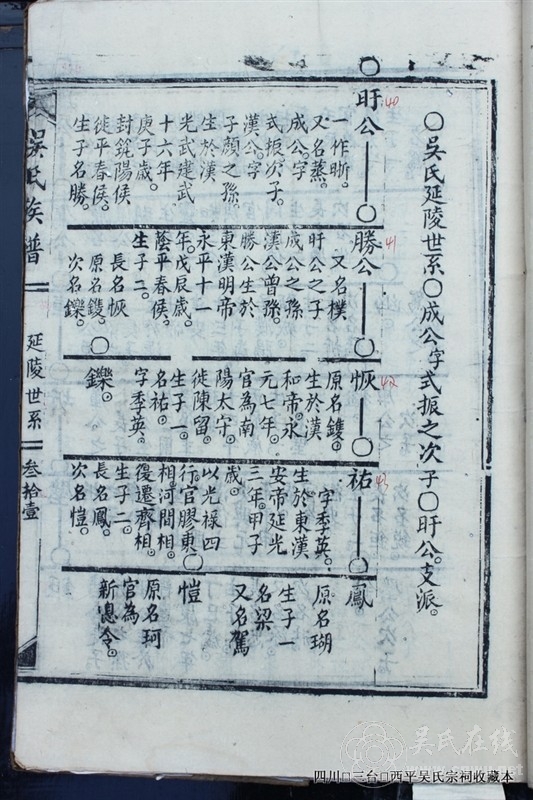 ○吳氏延陵世系○成公字式振之次子○旰公支派。
40
○旰公
一作昕。
又名蒸。
成公。字
式振次子。
漢公。字
子顏之孫
生於漢
光武建武
十六年
庚子歲。
封筑陽侯
徙平春侯。
生子名勝。
41
○勝公
又名樸
旰公之子
成公之孫
漢公曾孫。
勝公生於
東漢明帝
永平十一
年。戊辰歲。
蔭平春侯。
生子二。
長名恢
原名鑊。
次名鑠。
42
○恢
原名鑊。
生於漢
和帝。永
元七年。
官為南
陽太守。
徙陳留。
生子一
名祐。
字季英。
○鑠。
43
○祐
字季英。
生於東漢
安帝延光
三年。甲子
歲。
以光祿四
行。官膠東
相。河間相。
復遷齊相。
生子二。
長名鳳。
次名愷。
○鳳
原名瑚
生子一
名梁
又名駕
○愷
原名珂
官為
新息令。
吳氏族譜
延陵世系
叁拾壹
吴氏在线
四川□三台□西平吴氏宗祠收藏本